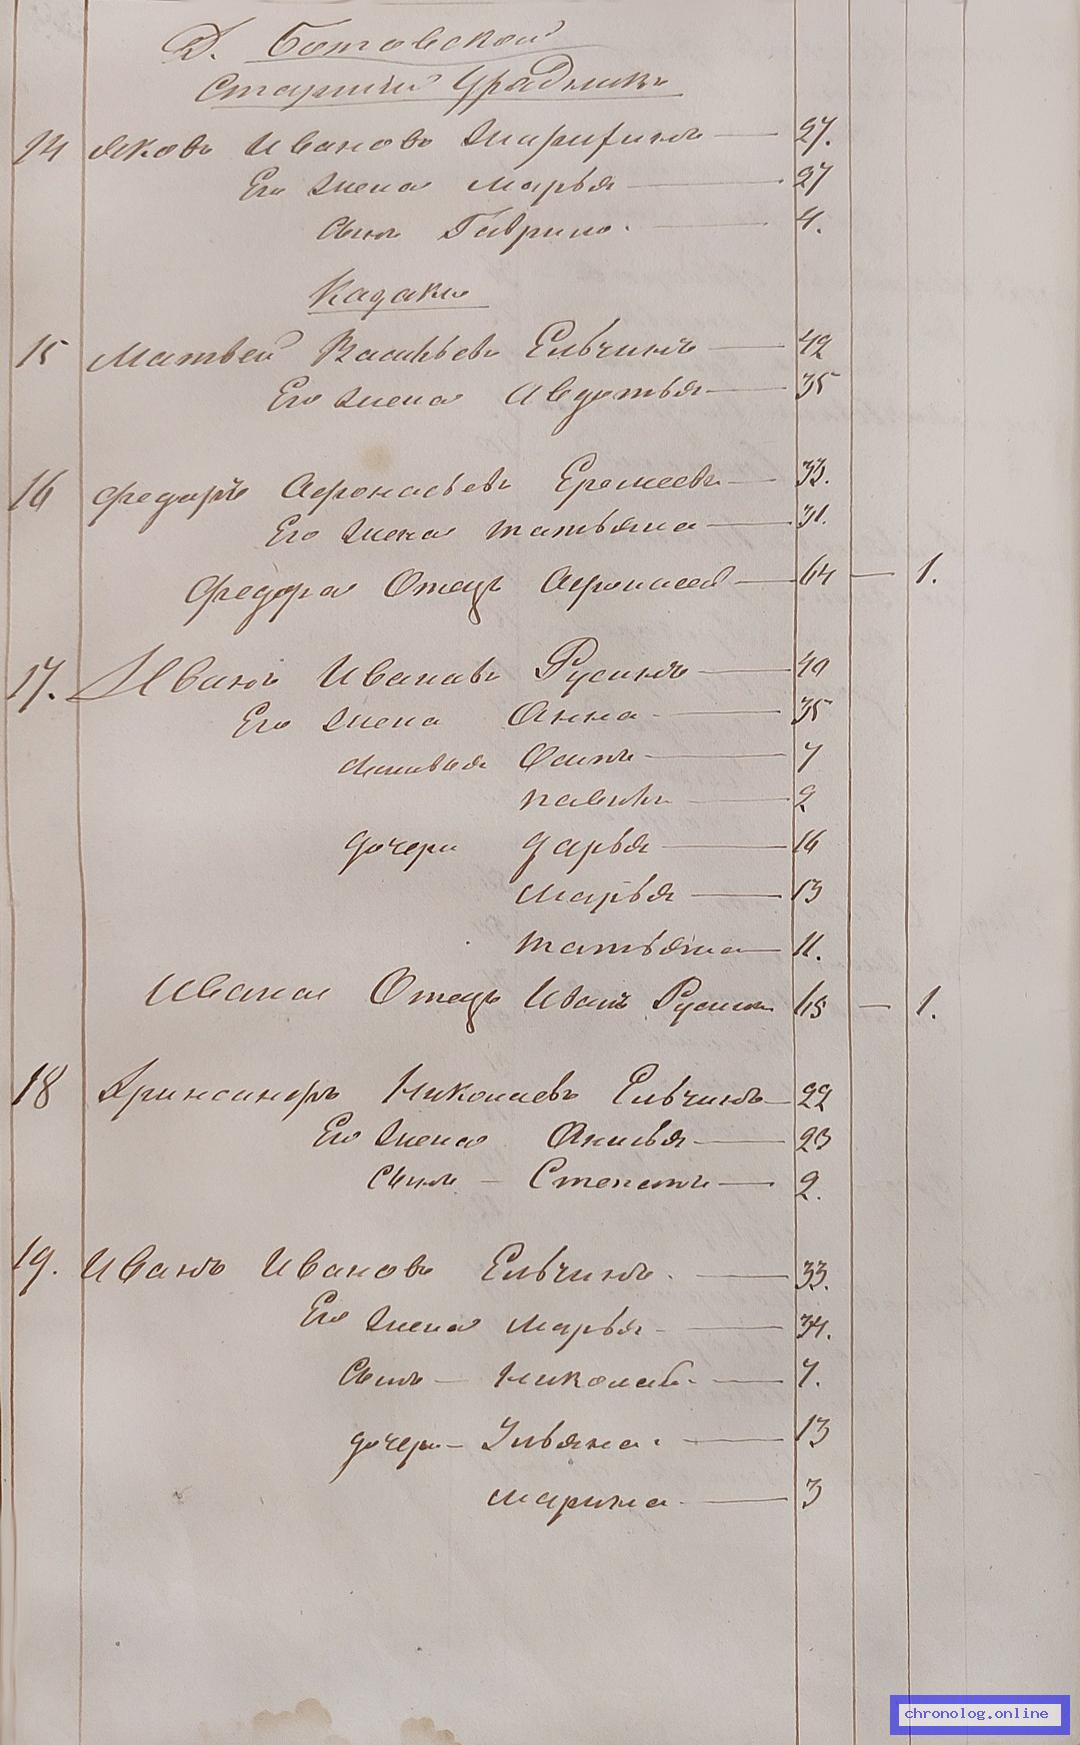 Д. Ботовской
Старший Урядникъ
14 Яковъ Ивановъ — 27.
Его Жена Марья — 27
Сынъ Гаврило. — 4.
Казаки
15 Матвей Васильевъ Ельчинъ — 42
Его Жена Авдотья — 35
16 Федоръ Афонасьевъ Еремеевъ — 33.
Его Жена Татьяна — 31.
Федора Отецъ Афонасей — 64 — 1.
17. Иванъ Ивановъ Русинъ — 40
Его Жена Анна — 35
сыновья Осипъ — 7
Павелъ — 2
дочери Дарья — 16
Марья — 13
Татьяна — 11.
Ивана Отецъ Иванъ Русинъ 65 — 1.
18 Николаевъ Ельчинъ — 22
Его Жена Акилья — 23
Сынъ — Степанъ — 2.
19. Иванъ Ивановъ Ельчинъ. — 33.
Его Жена Марья — 34.
Сынъ — Николай. — 7.
дочери — Ульяна. — 13
Марина — 3
chronolog.online